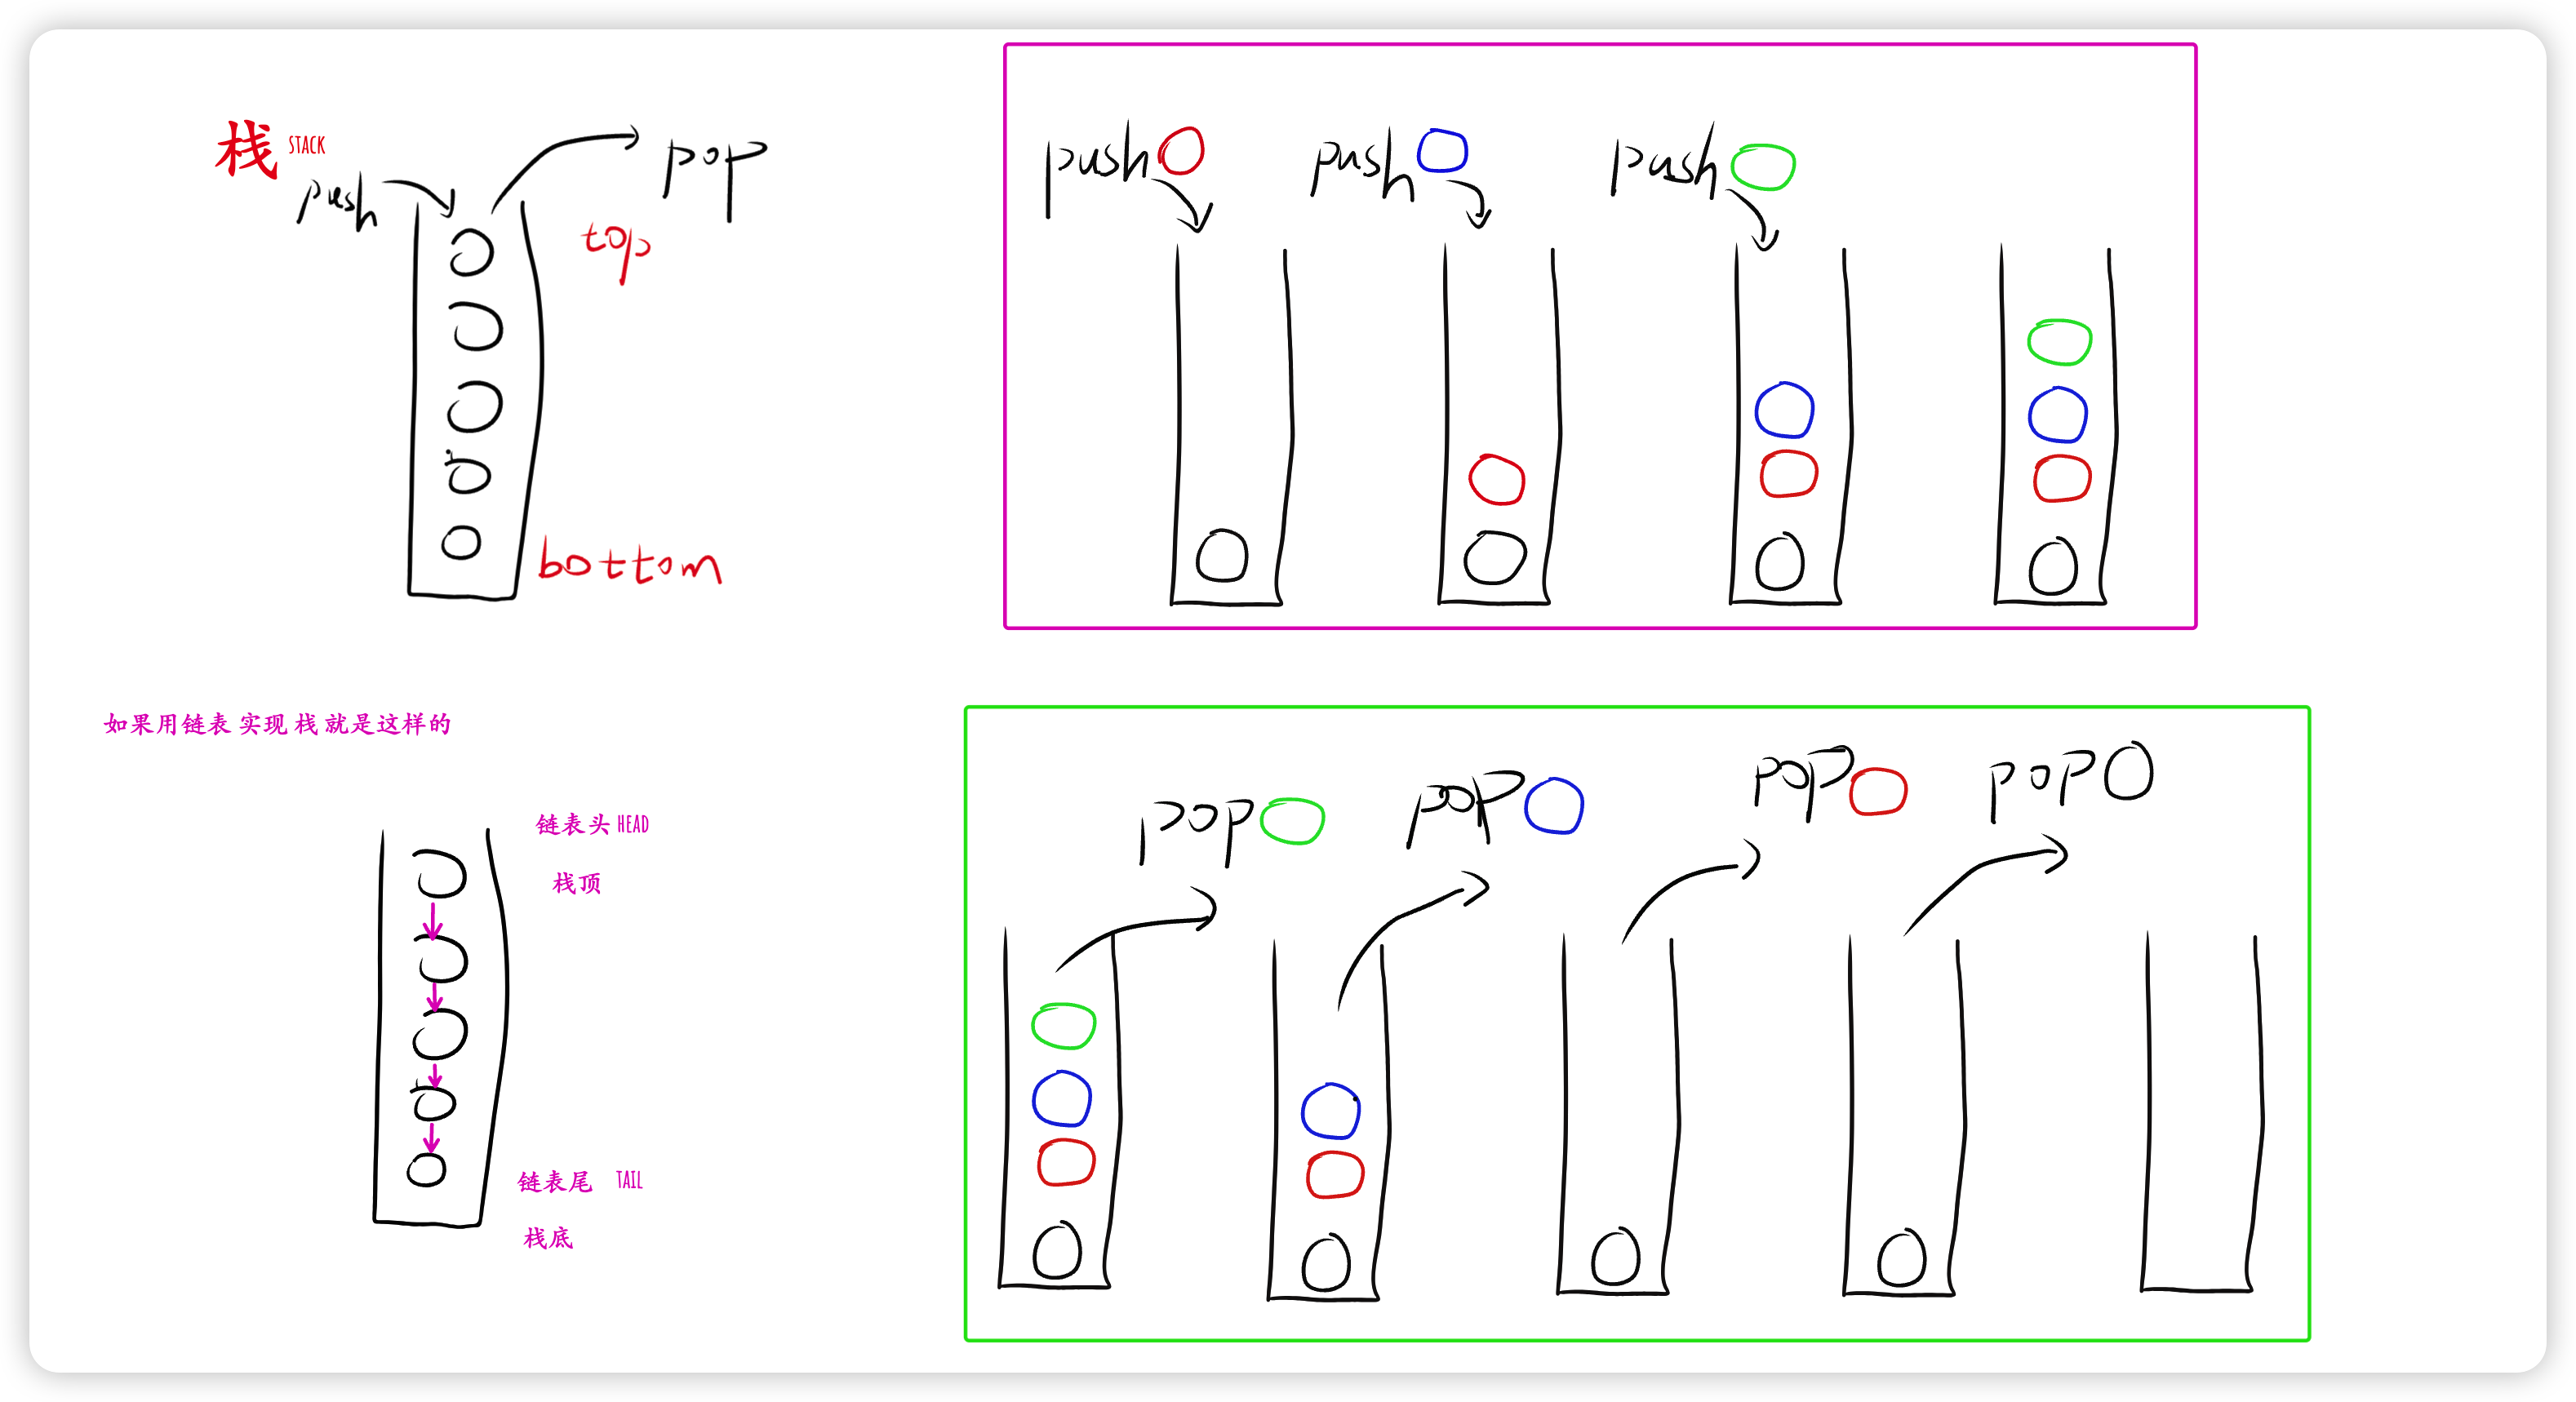 栈 STACK
push
pop
top
bottom
push
push
push
如果用链表 实现 栈 就是这样的
链表头 HEAD
栈顶
链表尾 TAIL
栈底
pop
pop
pop
pop